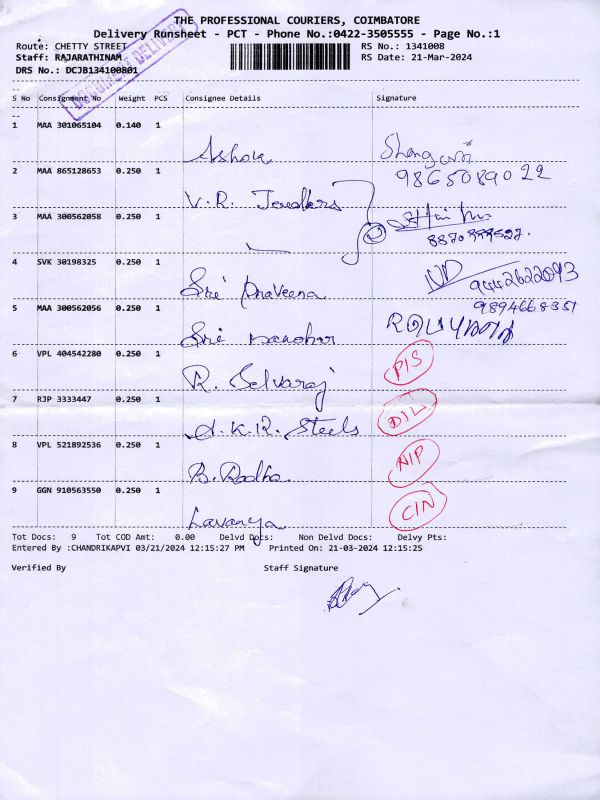 THE PROFESSIONAL COURIERS, COIMBATORE
Delivery Runsheet - PCT - Phone No.:0422-3505555 - Page No.:1
Route: CHETTY STREET
RS No.: 1341008
Staff: RAJARATHINAM
RS Date: 21-Mar-2024
DRS No.: DCJB134100801
DOCUMENT DELIVERY
S No Consignment No Weight PCS Consignee Details Signature
1 MAA 301065104 0.140 1
Ashok
9865089022
2 MAA 865128653 0.250 1
V.R. Jewellers
3 MAA 300562058 0.250 1
4 SVK 30198325 0.250 1
Sri Praveena
ND 9442622093
9894668351
5 MAA 300562056 0.250 1
Sri
6 VPL 404542280 0.250 1
R. Selvaraj
PIS
7 RJP 3333447 0.250 1
A.K.R. Steels
D/L
8 VPL 521892536 0.250 1
B. Radha
N/P
9 GGN 910563550 0.250 1
Lavanya
C/N
Tot Docs: 9 Tot COD Amt: 0.00 Delvd Docs: Non Delvd Docs: Delvy Pts:
Entered By :CHANDRIKAPVI 03/21/2024 12:15:27 PM Printed On: 21-03-2024 12:15:25
Verified By Staff Signature